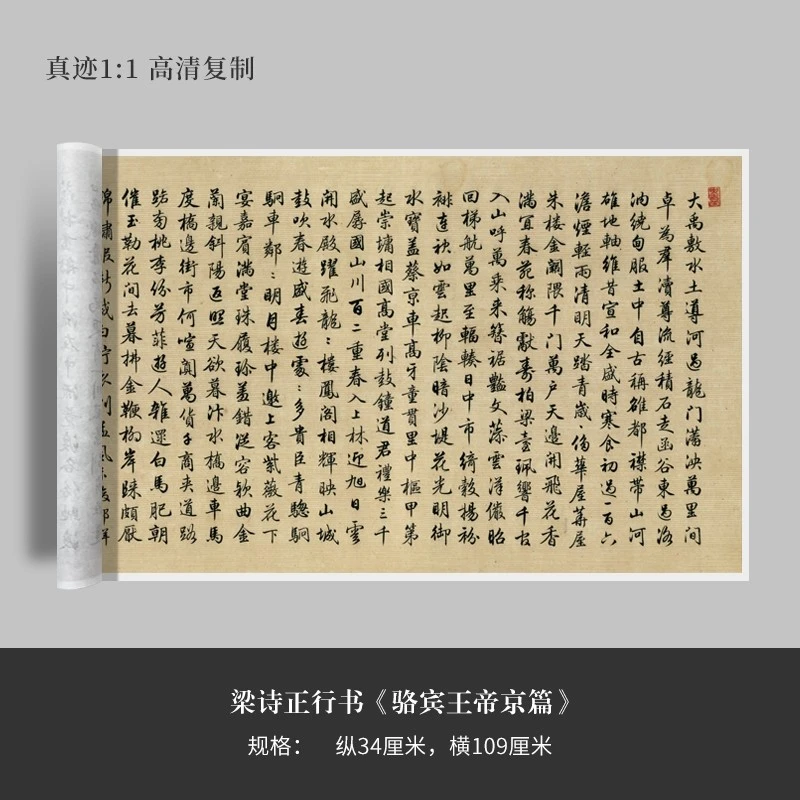 真迹1:1 高清复制
大禹敷水土導河過龍门泱萬里间
卓為羣瀆尊流經積石走函谷東過洛
汭繞甸服土中自古稱雒都襟帶山河
雄地軸維昔宣和全盛時寒食初過一百六
澹煙輕雨清明天踏青歲〻華屋屋
朱楼金闕隈千门萬户天邊開飛花香
满宜春苑称觴獻壽柏梁臺珮響千官
入山呼萬乘来簪裾艷文藻雲漢昭
回梯航萬里至輻輳日中市綺縠楊衯
裶连袂如雲起柳陰暗沙堤花光明御
水寶盖蔡京車高牙童貫里中樞甲第
起崇墉相國高堂列鼓鐘道君禮樂三千
盛國山川百二重春入上林迎旭日雲
開水殿躍飛龍〻楼鳳阁相輝映山城
鼓吹春遊盛春遊處〻多贵臣青驄駉
駉車鄰〻明月楼中邀上客紫薇花下
宴嘉賓满堂珠履珍盖錯從容軟曲金
蘭親斜陽返照天欲暮汴水橋邊車馬
度橋邊街市何喧闐萬貨子商夹道路
踏南桃李份芳菲遊人雜遝白馬肥朝
催玉勒花间去暮拂金鞭柳岸頗厭
梁诗正行书《骆宾王帝京篇》
规格： 纵34厘米，横109厘米